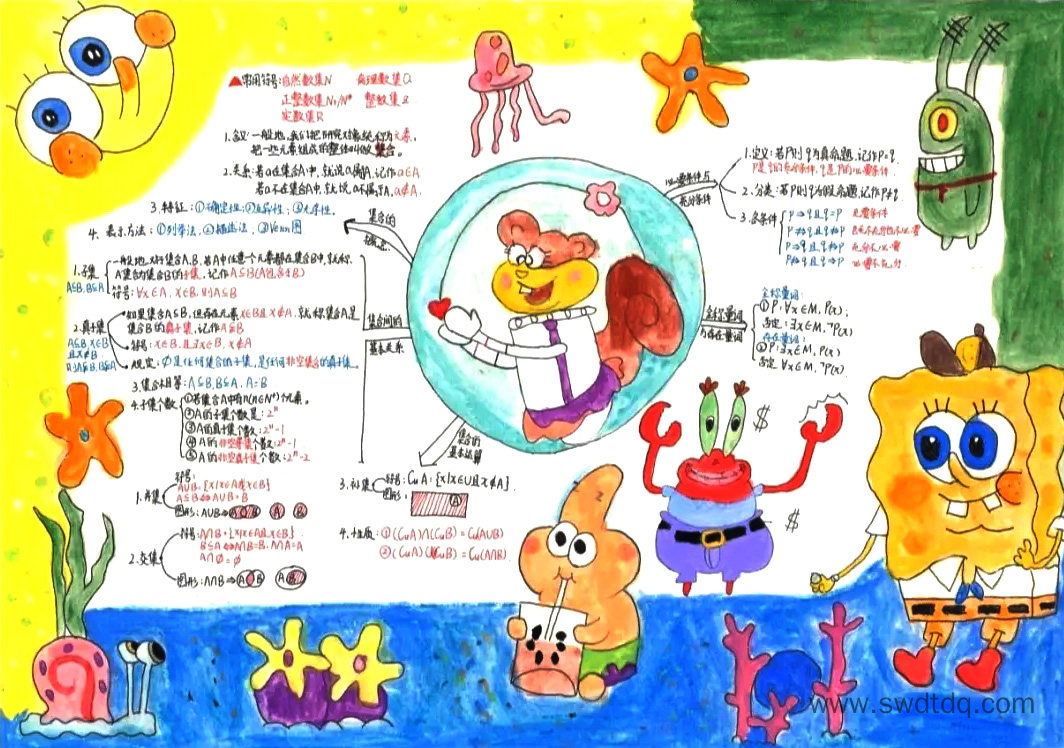 ▲常用符号:自然数集N 有理数集Q
正整数集N+/N* 整数集Z
实数集R
1.含义:一般地,我们把研究对象统称为元素,
把一些元素组成的整体叫做集合。
2.关系:若a在集合A中,就说a属于A,记作a∈A
若a不在集合A中,就说a不属于A,a∉A.
3.特征:①确定性;②互异性;③无序性.
4.表示方法:①列举法,②描述法,③Venn图
集合的
概念
1.子集
A⊆B,B⊆A
一般地,对于集合A.B,若A中任意一个元素都在集合B中,就称
A集合为集合B的子集,记作A⊆B(A包含于B)
符号:∀x∈A,x∈B,则A⊆B
2.真子集
A⊆B,x∈B
且x∉B
如果集合A⊆B,但存在元素x∈B且x∉A.就称集合A是
集合B的真子集,记作A⫋B
符号:x∈B,且∃x∈B,x∉A
规定:∅是任何集合的子集,是任何非空集合的真子集。
3.集合相等:A⊆B,B⊆A,A=B
4.子集个数
①若集合A中有n(n∈N*)个元素。
②A的子集个数是:2ⁿ
③A的真子集个数:2ⁿ-1
④A的非空子集个数:2ⁿ-1
⑤A的非空真子集个数:2ⁿ-2
集合间的
基本关系
集合的
基本运算
1.并集
符号:
A∪B.{x|x∈A或x∈B}
A⊆B⇔A∪B=B
图形:A∪B⇒
2.交集
符号:A∩B={x|x∈A且x∈B}
B⊆A⇔A∩B=B.A∩A=A
A∩∅=∅
图形:A∩B⇒
3.补集
符号:C∪A:{x|x∈U且x∉A}.
图形:
A
4.性质:①(C∪A)∩(C∪B)=C∪(A∪B)
②(C∪A)∪(C∪B)=C∪(A∩B)
必要条件与
充分条件
1.定义:若P则q为真命题,记作P⇒q.
P是q的充分条件,q是P的必要条件
2.分类:若P则q为假命题,记作P⇏q
3.各条件
充要条件
既不充分也不必要
充分不必要
必要不充分.
全称量词
与存在量词
全称量词:
①P:∀x∈M,P(x);
否定:∃x∈M,¬P(x)
存在量词:
②P:∃x∈M,P(x)
否定∀x∈M,¬P(x)
$
$
www.swdtdq.com